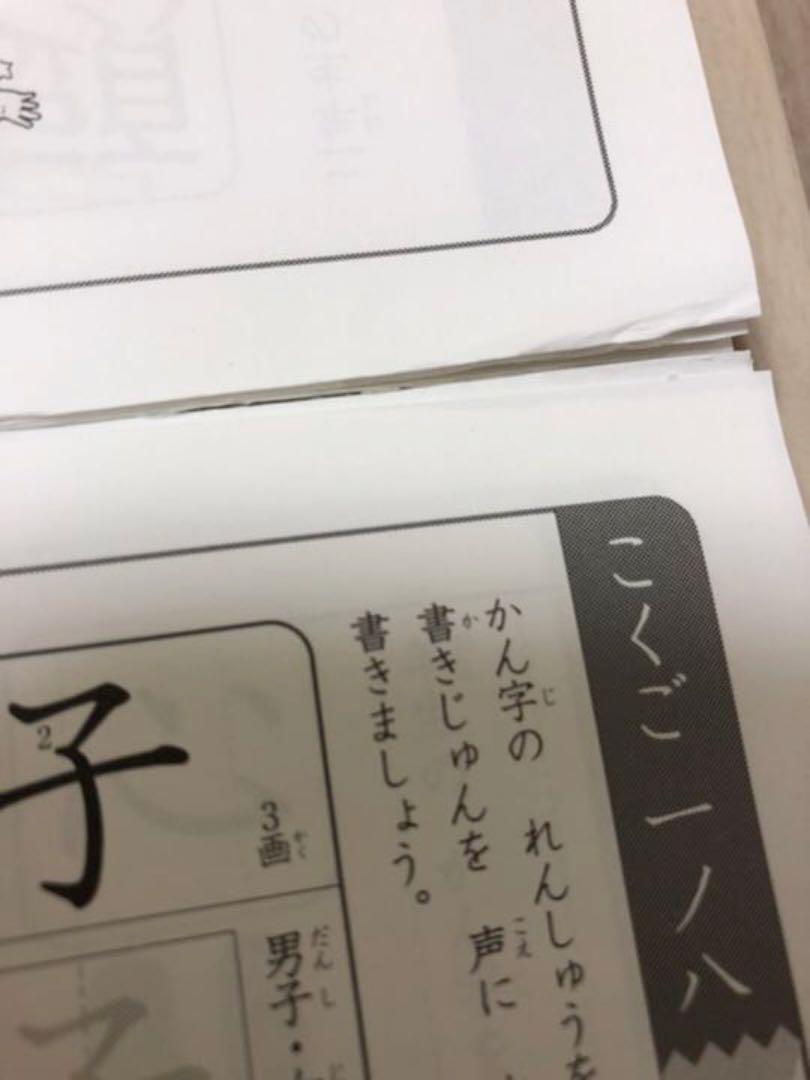 こくご 一ノ八
かん字の れんしゅうを
書きじゅんを 声に
書きましょう。
子
2
3画
男子・